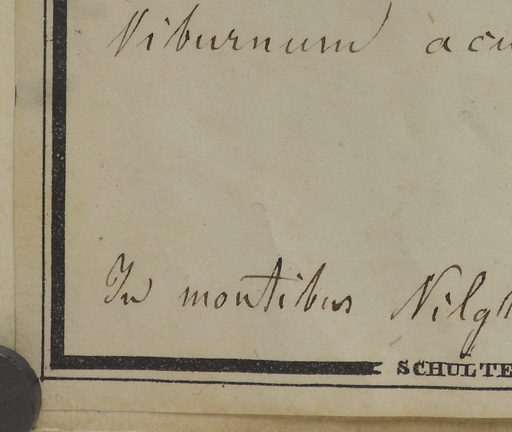 Viburnum acu
In montibus Nilgh
SCHULTE